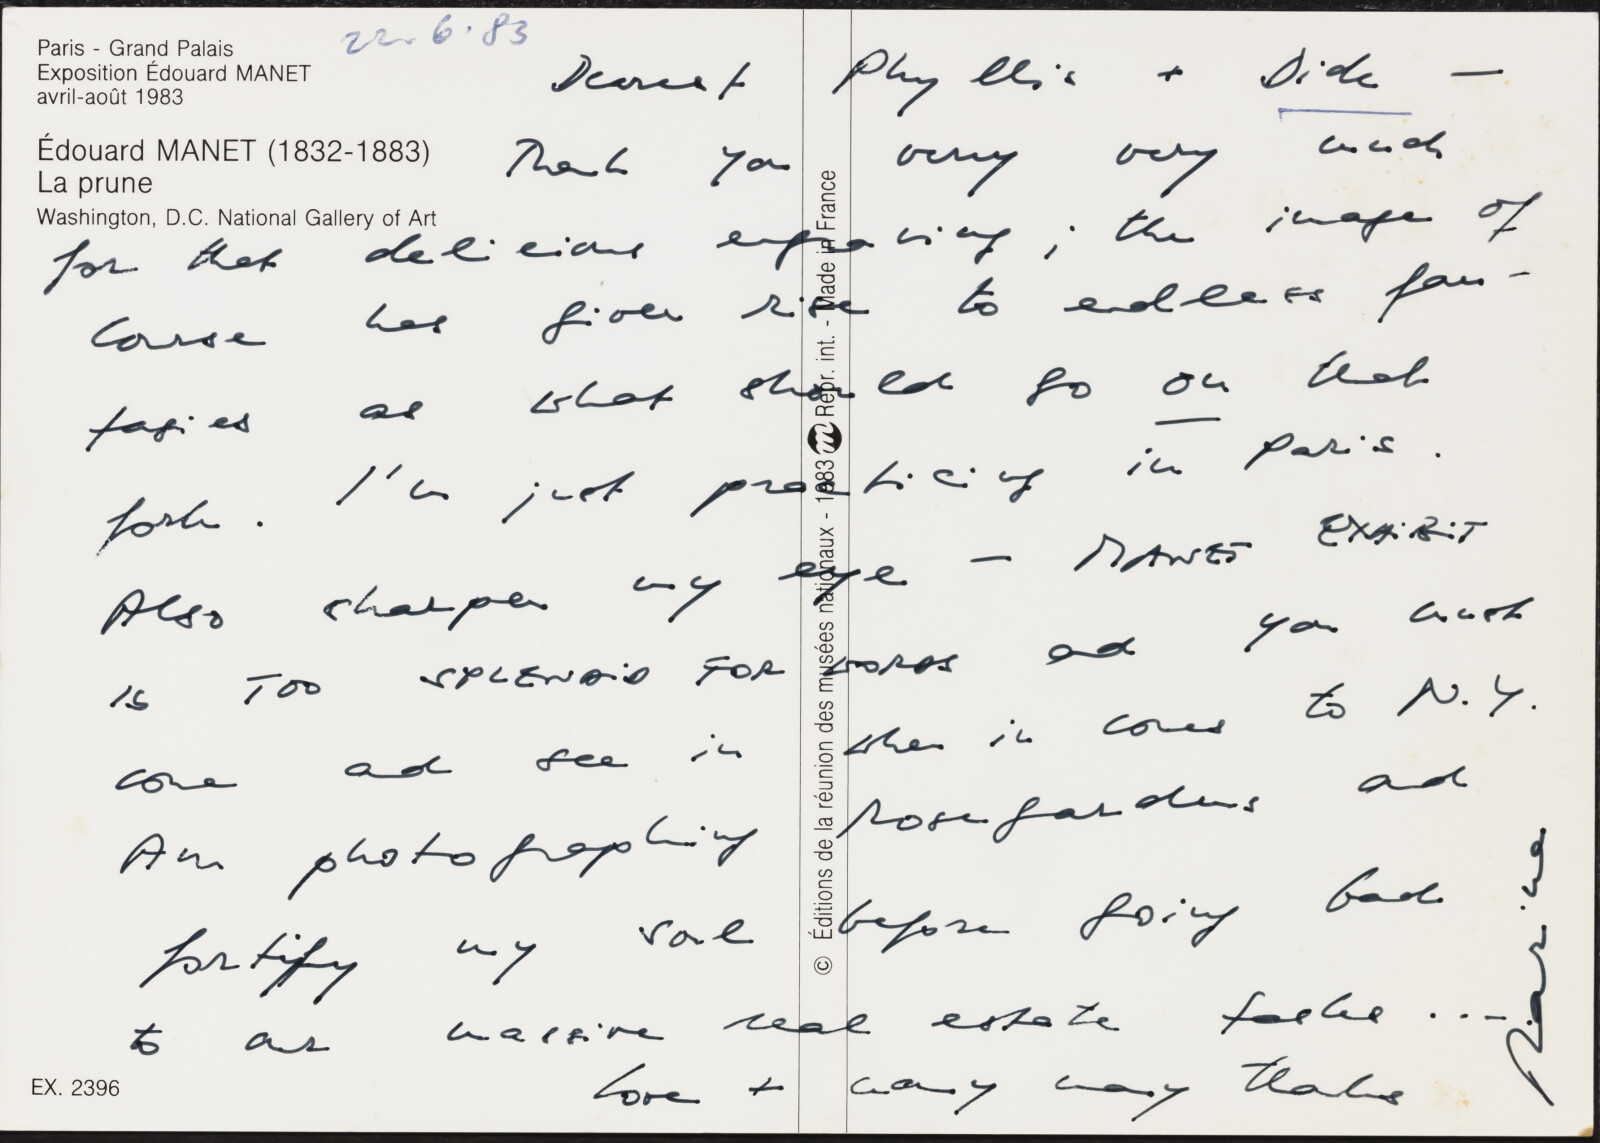 Paris - Grand Palais
Exposition Édouard MANET
avril-août 1983
22.6.83
Édouard MANET (1832-1883)
La prune
Washington, D.C. National Gallery of Art
Dearest Phyllis + Dick —
Thank you very very much
for that delicious engraving ; the image of
course has given rise to endless fan-
tasies as what should go on that
fork. I'm just practicing in Paris.
Also sharpen my eye — MANET EXHIBIT
is TOO SPLENDID FOR WORDS and you must
come and see it when it comes to N.Y.
Am photographing rose gardens and
fortify my soul before going back
to our massive real estate tasks ...
Love + many many thanks
Marina
© Éditions de la réunion des musées nationaux - 1983 m Repr. int. - Made in France
EX. 2396